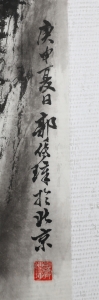 庚申夏日郭傳璋於北京